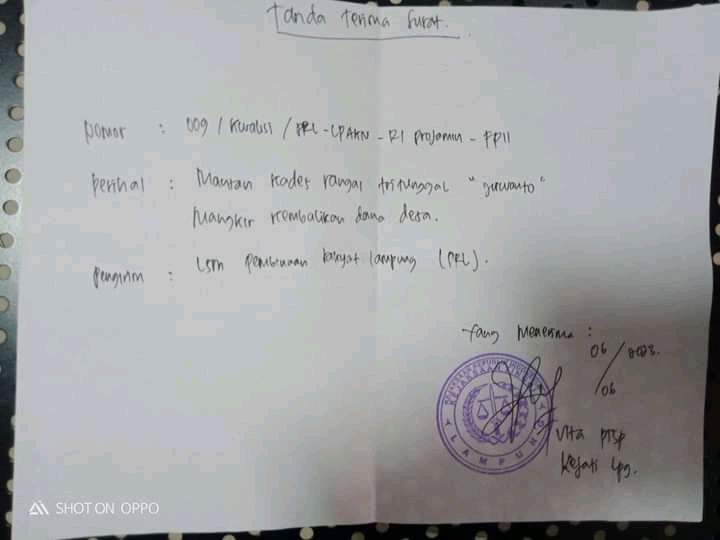 Tanda terima surat.
Nomor : 009 / Koalisi / PRL - LPAKN - RI Projamin - FPII
Perihal : Mantan Kades rangai tritunggal "
Mangkir Kembalikan dana desa.
Pengirim : LSM Pembinaan Rakyat Lampung (PRL).
Yang Menerima :
06 /
/ 06
KEJAKSAAN
LAMPUNG
Vita PTSP
Kejati Lpg.
SHOT ON OPPO